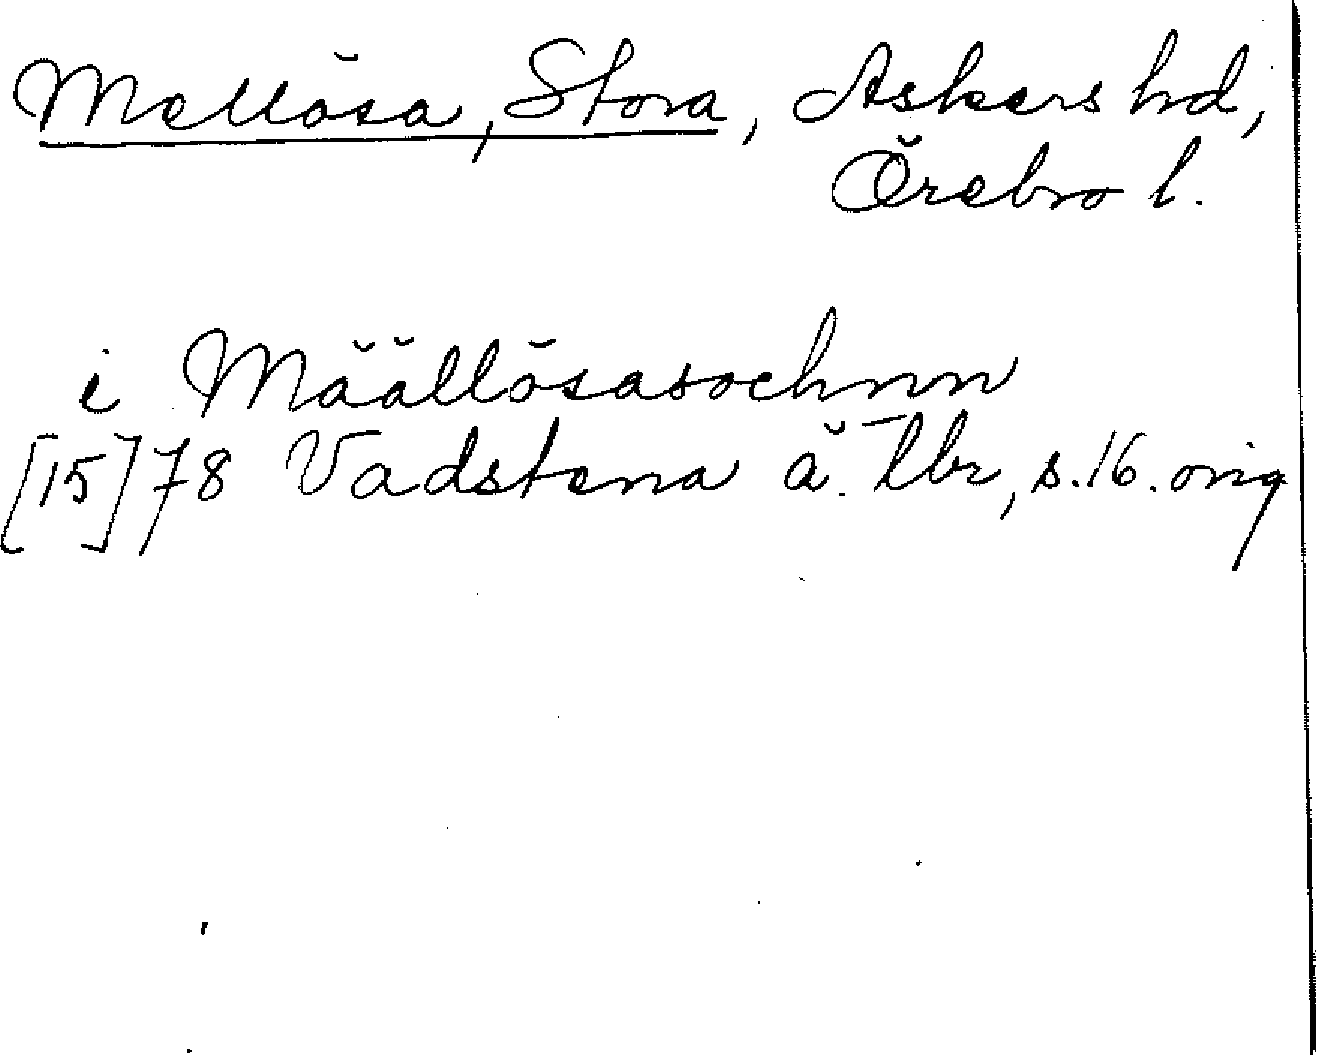 Mellösa, Stora, Askers hd,
Örebro l.
i Määllösasochnn
[15]78 Vadstena ä. Tbr, s. 16. orig